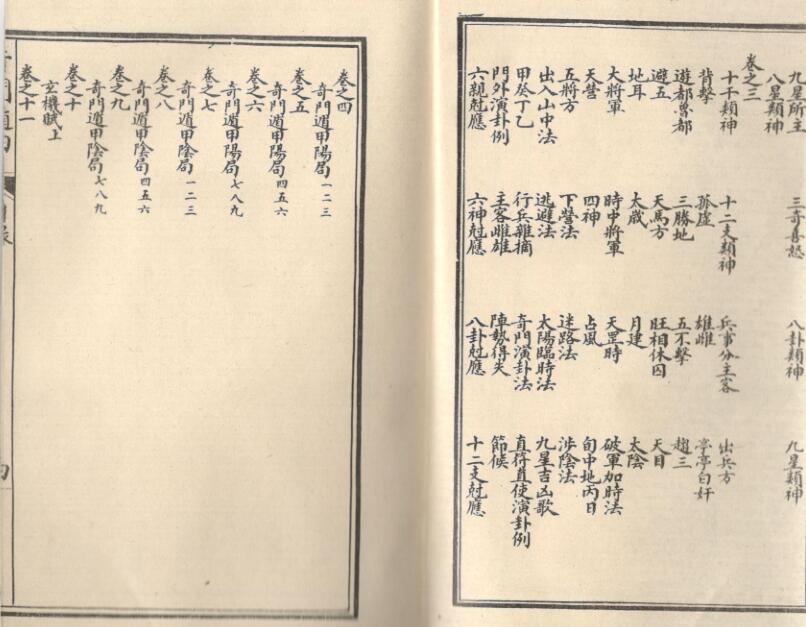 九星所主 三奇喜怒 八卦類神 九星類神
八星類神
卷之三
十干類神 十二支類神 兵事分主客 出兵方
背擊 孤虛 雄雌 亭亭白奸
遊都魯都 三勝地 五不擊 趙三
避五 天馬方 旺相休囚 天目
地耳 太歲 月建 太陰
大將軍 時中將軍 天罡時 破軍加時法
天營 四神 占風 旬中地丙日
五將方 下營法 迷路法 涉陰法
出入山中法 逃避法 太陽臨時法 九星吉凶歌
甲癸丁乙 行兵雜摘 奇門演卦法 直符直使演卦例
門外演卦例 主客雌雄 陣勢得失 節候
六親尅應 六神尅應 八卦尅應 十二支尅應
卷之四
奇門遁甲陽局 一二三
卷之五
奇門遁甲陽局 四五六
卷之六
奇門遁甲陽局 七八九
卷之七
奇門遁甲陰局 一二三
卷之八
奇門遁甲陰局 四五六
卷之九
奇門遁甲陰局 七八九
卷之十
玄機賦上
卷之十一